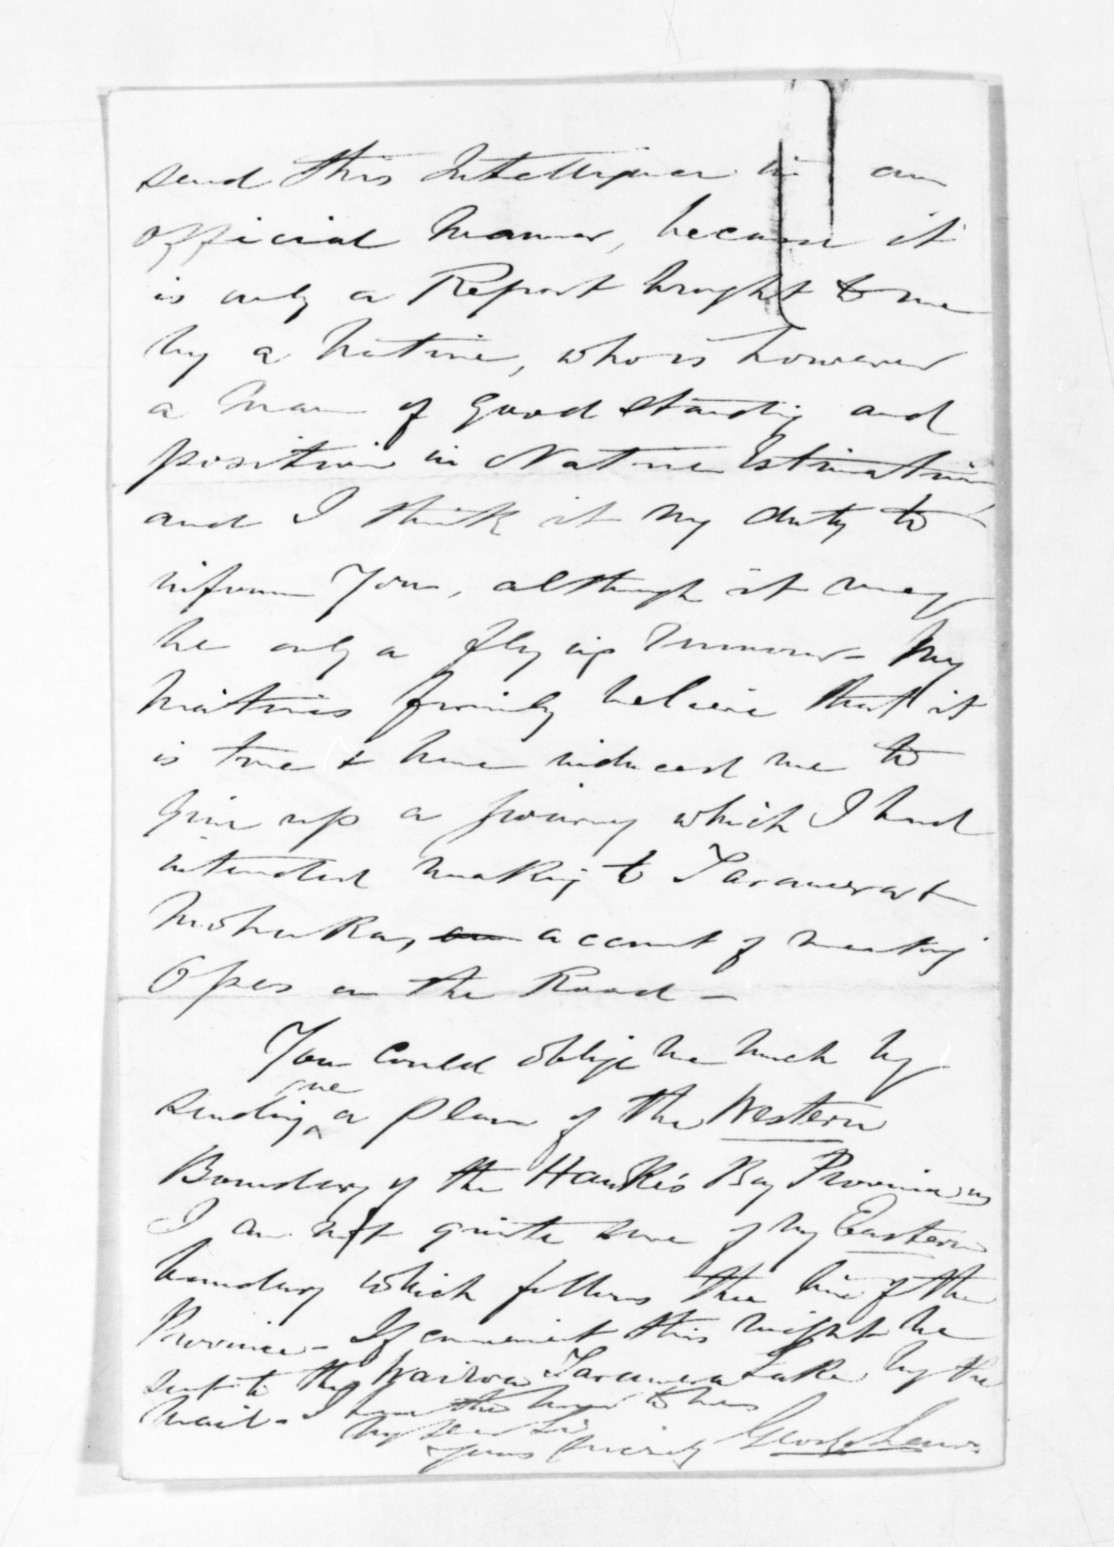 send this Intelligence in an
official manner, because it
is only a Report brought to me
by a Native, who is however
a man of good standing and
position in Native Estimation
and I think it my duty to
inform You, although it may
be only a flying rumour - My
Natives firmly believe that it
is true & have induced me to
give up a journey which I had
intended making to Tarawera &
Mohaka, on account of meeting
Opes on the Road -
You could oblige me much by
sending me a plan of the Western
Boundary of the Hawke's Bay Province as
I am not quite sure of my Eastern
boundary which follows the line of the
Province - If convenient this might be
sent to the Wairoa Tarawera Lake by the
mail - I have the honor to be
My dear Sir
Yours sincerely George